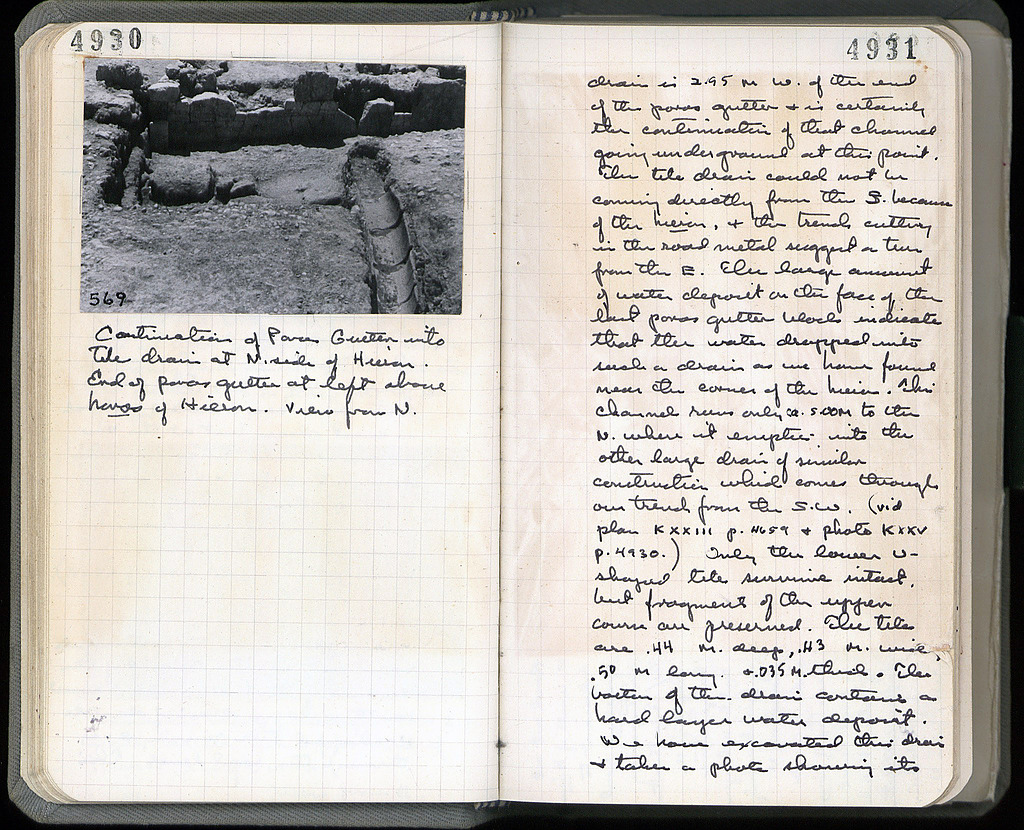 4930
569
Continuation of Poros Gutter into
tile drain at N. side of Hieron.
End of poros gutter at left above
horos of Hieron. View from N.
4931
drain is 2.95 M W. of the end
of the poros gutter + is certainly
the continuation of that channel
going underground at this point.
The tile drain could not be
coming directly from the S. because
of the hieron, + the trench cutting
in the road metal suggest a turn
from the E. The large amount
of water deposit on the face of the
last poros gutter block indicate
that the water dropped into
such a drain as we have found
near the corner of the hieron. This
channel runs only ca. 5.00M to the
N. where it empties into the
other large drain of similar
construction which comes through
our trench from the S.W. (vid
plan KXXIII p. 4659 + photo KXXV
p. 4930.) Only the lower U-
shaped tile survive intact,
but fragments of the upper
course are preserved. The tiles
are .44 M. deep, .43 M. wide,
.50 M long. + .035 M. thick. The
bottom of the drain contains a
hard layer water deposit.
We have excavated this drain
+ taken a photo showing its